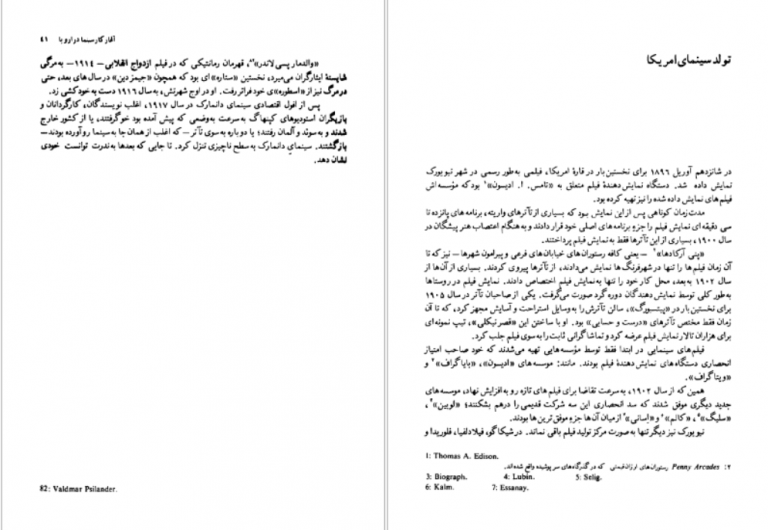 تولد سینمای امریکا
در شانزدهم آوریل ۱۸۹۶ برای نخستین بار در قارهٔ امریکا، فیلمی به‌طور رسمی در شهر نیویورک
نمایش داده شد. دستگاه نمایش‌دهندهٔ فیلم متعلق به «تامس. ا. ادیسون»۱ بود که مؤسسه‌اش
فیلم‌های نمایش داده شده را نیز تهیه کرده بود.
مدت زمان کوتاهی پس از این نمایش بود که بسیاری از تآترهای واریته، برنامه‌های پانزده تا
سی دقیقه‌ای نمایش فیلم را جزء برنامه‌های اصلی خود قرار دادند و به هنگام اعتصاب هنرپیشگان در
سال ۱۹۰۰، بسیاری از این تآترها فقط به نمایش فیلم پرداختند.
«پنی آرکادها»۲ — یعنی کافه رستوران‌های خیابان‌های فرعی و پیرامون شهرها — نیز که تا
آن زمان فیلم‌ها را تنها در شهرفرنگ‌ها نمایش می‌دادند، از تآترها پیروی کردند. بسیاری از آن‌ها از
سال ۱۹۰۲ به بعد، محل کار خود را تنها به نمایش فیلم اختصاص دادند. نمایش فیلم در روستاها
به‌طور کلی توسط نمایش‌دهندگان دوره‌گرد صورت می‌گرفت. یکی از صاحبان تآتر در سال ۱۹۰۵
برای نخستین بار در «پیتسبورگ»، سالن تآترش را به وسایل استراحت و آسایش مجهز کرد، که تا آن
زمان فقط مختص تآترهای «درست و حسابی» بود. او با ساختن این «قصر نیکلی»، تیپ نمونه‌ای
برای هزاران تالار نمایش فیلم عرضه کرد و تماشاگرانی ثابت را به سوی فیلم جلب کرد.
فیلم‌های سینمایی در ابتدا فقط توسط مؤسسه‌هایی تهیه می‌شدند که خود صاحب امتیاز
انحصاری دستگاه‌های نمایش دهندهٔ فیلم بودند. مانند: موسسه‌های «ادیسون»، «بایاگراف»۳ و
«ویتاگراف».
همین که از سال ۱۹۰۲، به سرعت تقاضا برای فیلم‌های تازه رو به افزایش نهاد، موسسه‌های
جدید دیگری موفق شدند که سد انحصاری این سه شرکت قدیمی را درهم بشکنند؛ «لوبین»۴،
«سلیگ»۵، «کالم»۶ و «اِسانی»۷ از میان آن‌ها جزءِ موفق‌ترین‌ها بودند.
نیویورک نیز دیگر تنها به صورت مرکز تولید فیلم باقی نماند. در شیکاگو، فیلادلفیا، فلوریدا و
1: Thomas A. Edison.
۲: Penny Arcades رستوران‌های ارزان‌قیمتی که در گذرگاه‌های سرپوشیده واقع شده‌اند.
3: Biograph. 4: Lubin. 5: Selig.
6: Kalm. 7: Essanay.
آغاز کار سینما در اروپا ۴۱
«والدمار پسی‌لاندر»۸۲، قهرمان رمانتیکی که در فیلم ازدواج انقلابی — ۱۹۱۴ — به مرگی
شایستهٔ ایثارگران می‌میرد، نخستین «ستاره»‌ای بود که همچون «جیمز دین» در سال‌های بعد، حتی
در مرگ نیز از «اسطوره»‌ی خود فراتر رفت. او در اوج شهرتش، به سال ۱۹۱۶ دست به خودکشی زد.
پس از افول اقتصادی سینمای دانمارک در سال ۱۹۱۷، اغلب نویسندگان، کارگردانان و
بازیگران استودیوهای کپنهاگ به سرعت به وضعی که پیش آمده بود خو گرفتند، یا از کشور خارج
شدند و به سوئد و آلمان رفتند؛ یا دوباره به سوی تآتر — که اغلب از همان جا به سینما رو آورده بودند—
بازگشتند. سینمایِ دانمارک به سطح ناچیزی تنزل کرد. تا جایی که بعدها به ندرت توانست خودی
نشان دهد.
82: Valdmar Psilander.